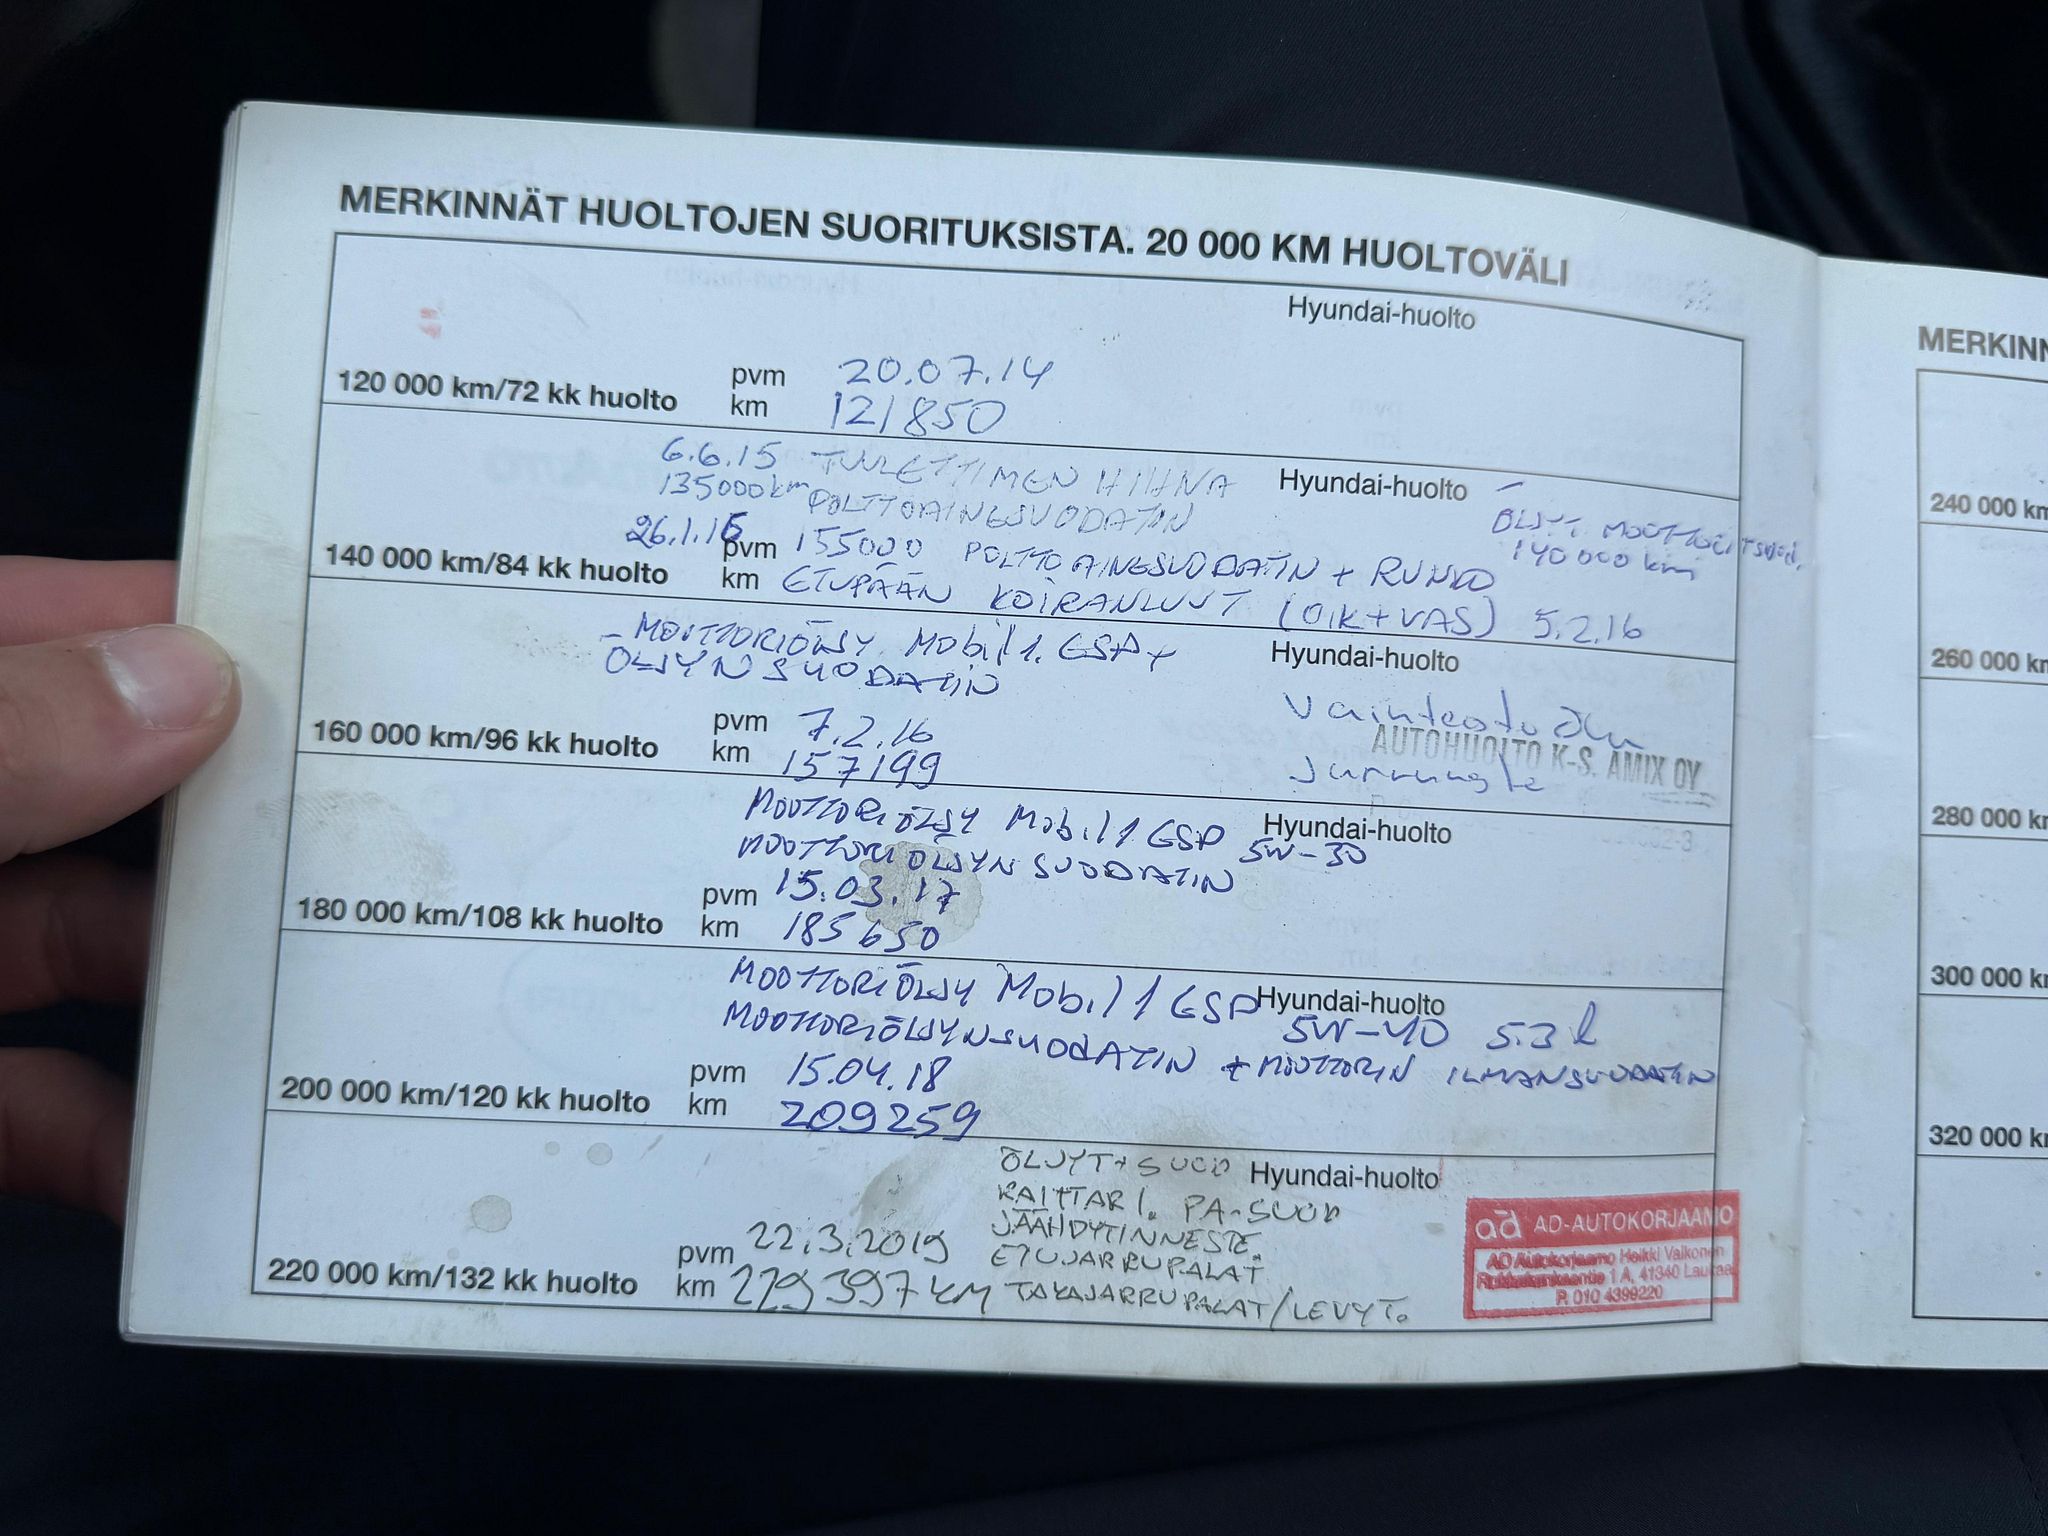 MERKINNÄT HUOLTOJEN SUORITUKSISTA. 20 000 KM HUOLTOVÄLI
Hyundai-huolto
120 000 km/72 kk huolto
pvm 20.07.14
km 121850
6.6.15 TUULETTIMEN HIHNA
135000km POLTTOAINESUODATIN
Hyundai-huolto
ÖLJYT, MOOTTORI
140 000 km
26.1.16
140 000 km/84 kk huolto
pvm 155000 POLTTOAINESUODATIN + RUNKO
km ETUPÄÄN KOIRANLUUT (OIK+VAS) 5.2.16
- MOOTTORIÖLJY Mobil 1. ESP +
ÖLJYN SUODATIN
Hyundai-huolto
Vaihteisto öljy
AUTOHUOLTO K-S. AMIX OY
160 000 km/96 kk huolto
pvm 7.2.16
km 157199
MOOTTORIÖLJY Mobil 1 ESP 5W-30
Hyundai-huolto
MOOTTORIÖLJYN SUODATIN
180 000 km/108 kk huolto
pvm 15.03.17
km 185650
MOOTTORIÖLJY Mobil 1 ESP 5W-40 5.3 l
Hyundai-huolto
MOOTTORIÖLJYNSUODATIN + MOOTTORIN ILMANSUODATIN
200 000 km/120 kk huolto
pvm 15.04.18
km 209259
ÖLJYT+SUOD
Hyundai-huolto
RAITTARI. PA-SUOD
JÄÄHDYTINNESTE.
ETUJARRUPALAT
TAKAJARRUPALAT/LEVYT.
220 000 km/132 kk huolto
pvm 22.3.2019
km 229397 KM
ad AD-AUTOKORJAAMO
AD Autokorjaamo Heikki Valkonen
1 A, 41340 Laukaa
P. 010 4399220
MERKINN
240 000 km
260 000 km
280 000 km
300 000 km
320 000 km